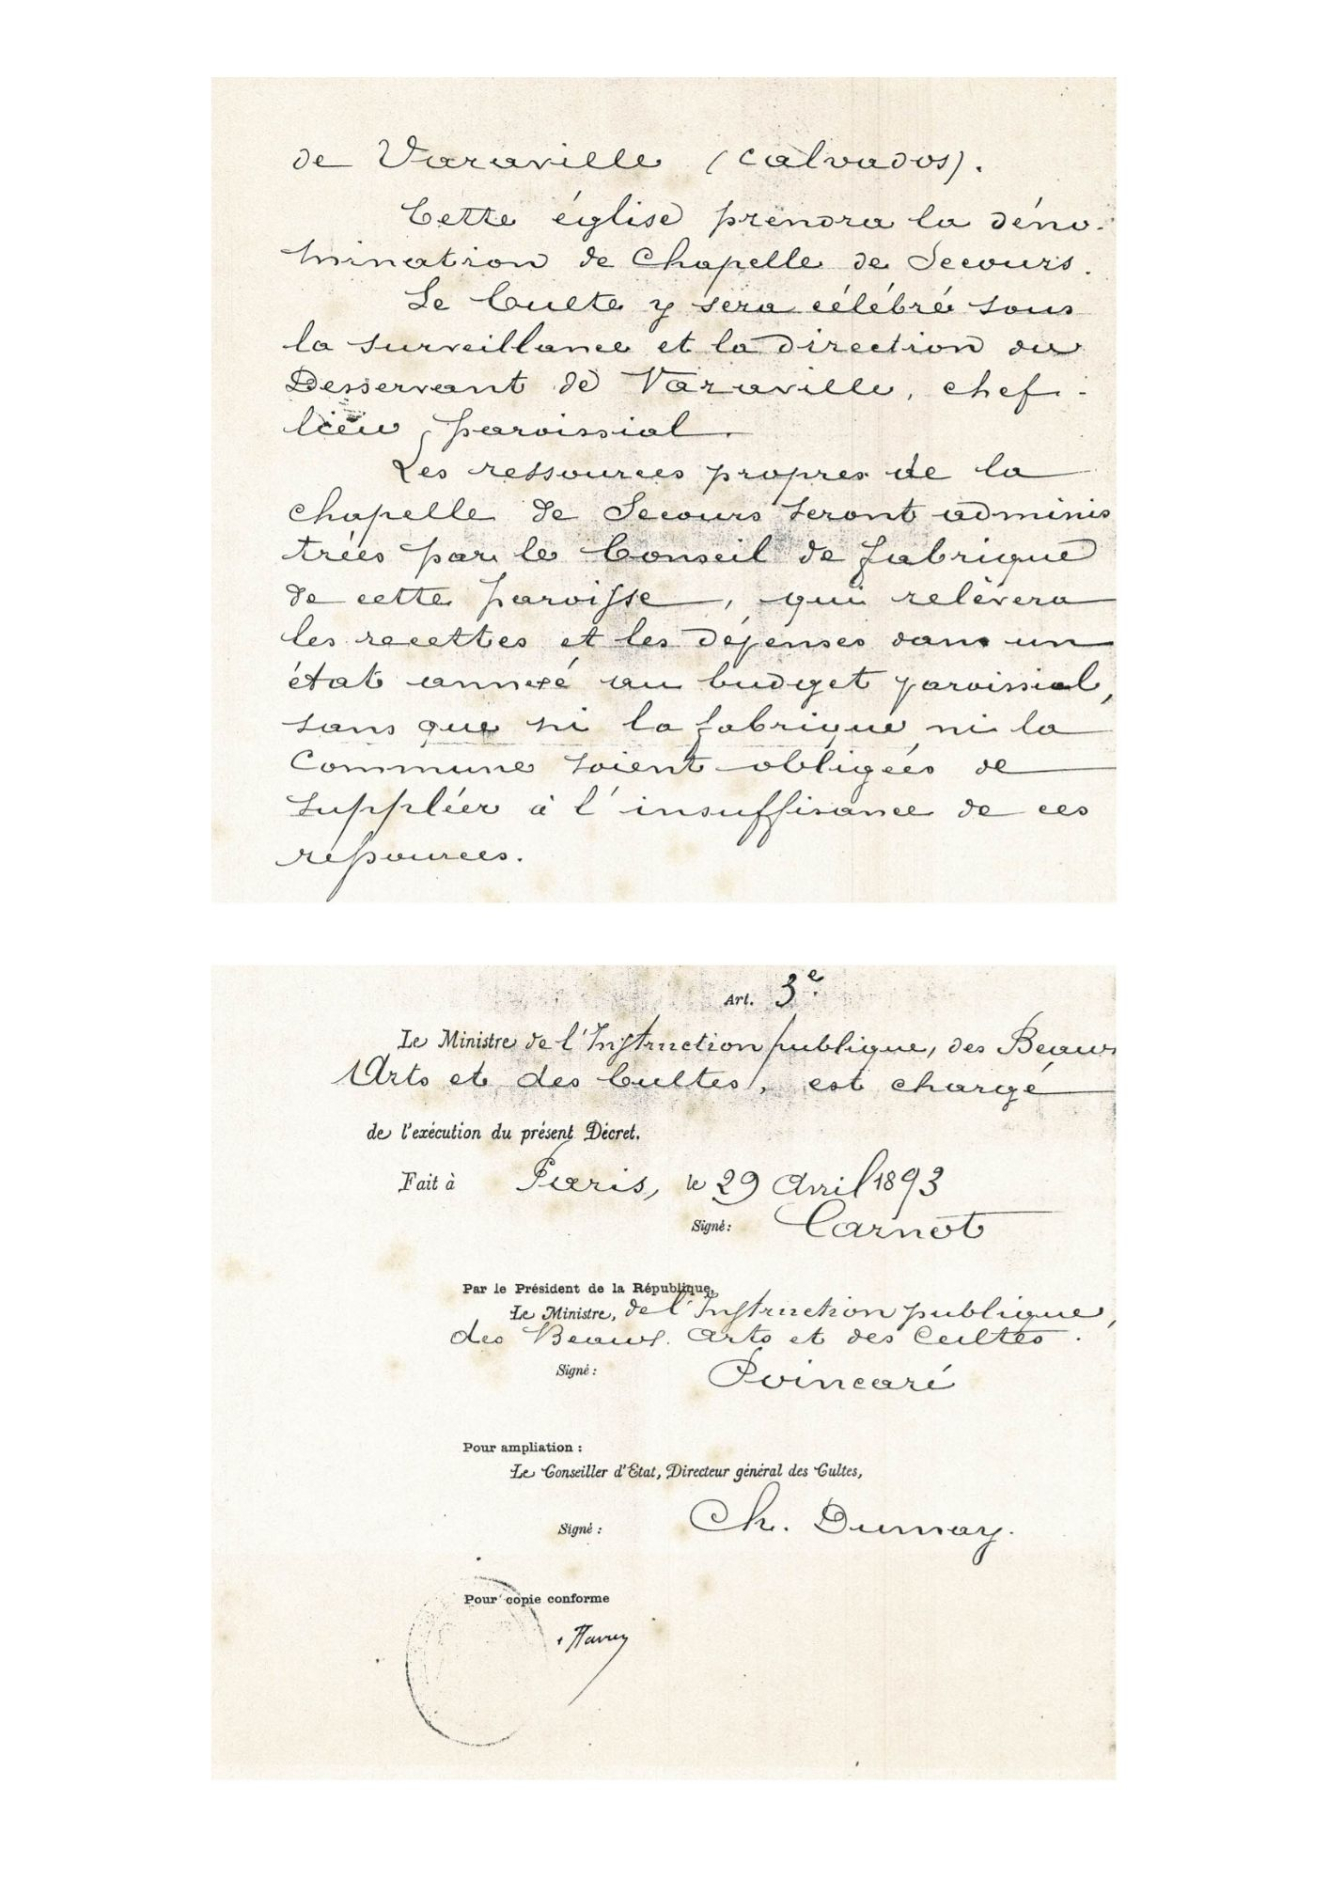 de Varaville (Calvados).
Cette église prendra la déno-
mination de Chapelle de Secours.
Le Culte y sera célébré sous
la surveillance et la direction du
Desservant de Varaville, chef-
lieu paroissial.
Les ressources propres de la
chapelle de Secours seront adminis
trées par le Conseil de fabrique
de cette paroisse, qui relèvera
les recettes et les dépenses dans un
état annexé au budget paroissial,
sans que ni la fabrique ni la
Commune soient obligées de
suppléer à l'insuffisance de ces
ressources.
Art. 3e.
Le Ministre de l'Instruction publique, des Beaux
Arts et des Cultes, est chargé
de l'exécution du présent Décret.
Fait à Paris, le 29 Avril 1893
Signé: Carnot
Par le Président de la République,
Le Ministre, de l'Instruction publique,
des Beaux-Arts et des Cultes.
Signé: Poincaré
Pour ampliation :
Le Conseiller d'Etat, Directeur général des Cultes,
Signé: Ch. Dumay.
Pour copie conforme